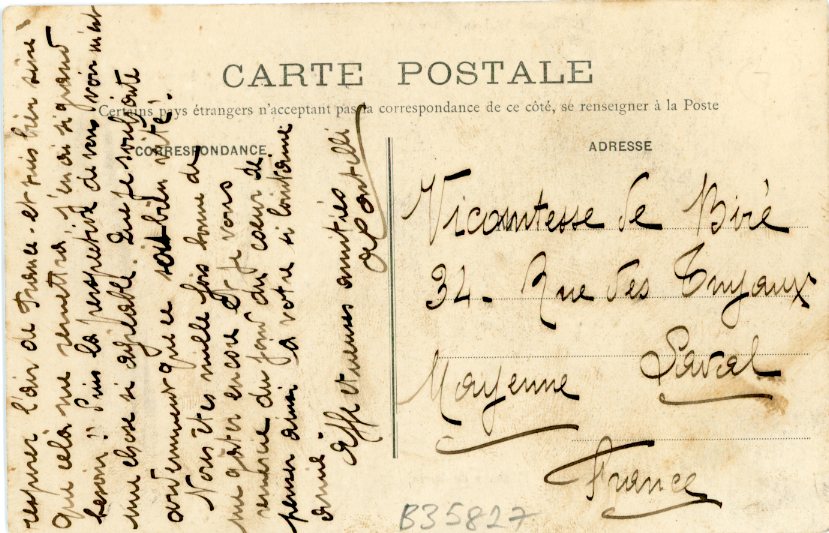 CARTE POSTALE
Certains pays étrangers n'acceptant pas la correspondance de ce côté, se renseigner à la Poste
CORRESPONDANCE
ADRESSE
respirer l'air de France - et suis bien sûre
que cela me remettra, j'en ai si grand
besoin !! Puis la perspective de vous voir m'est
une chose si agréable. Que je souhaite
ardemment que ce soit bien vite.
Vous êtes mille fois bonne de
me gâter encore et je vous
remercie du fond du coeur de
penser ainsi à votre si lointaine
amie.
Affectueuses amitiés
Vicomtesse de Biré
34 - Rue des Tuyaux
Laval
Mayenne
France
B35827